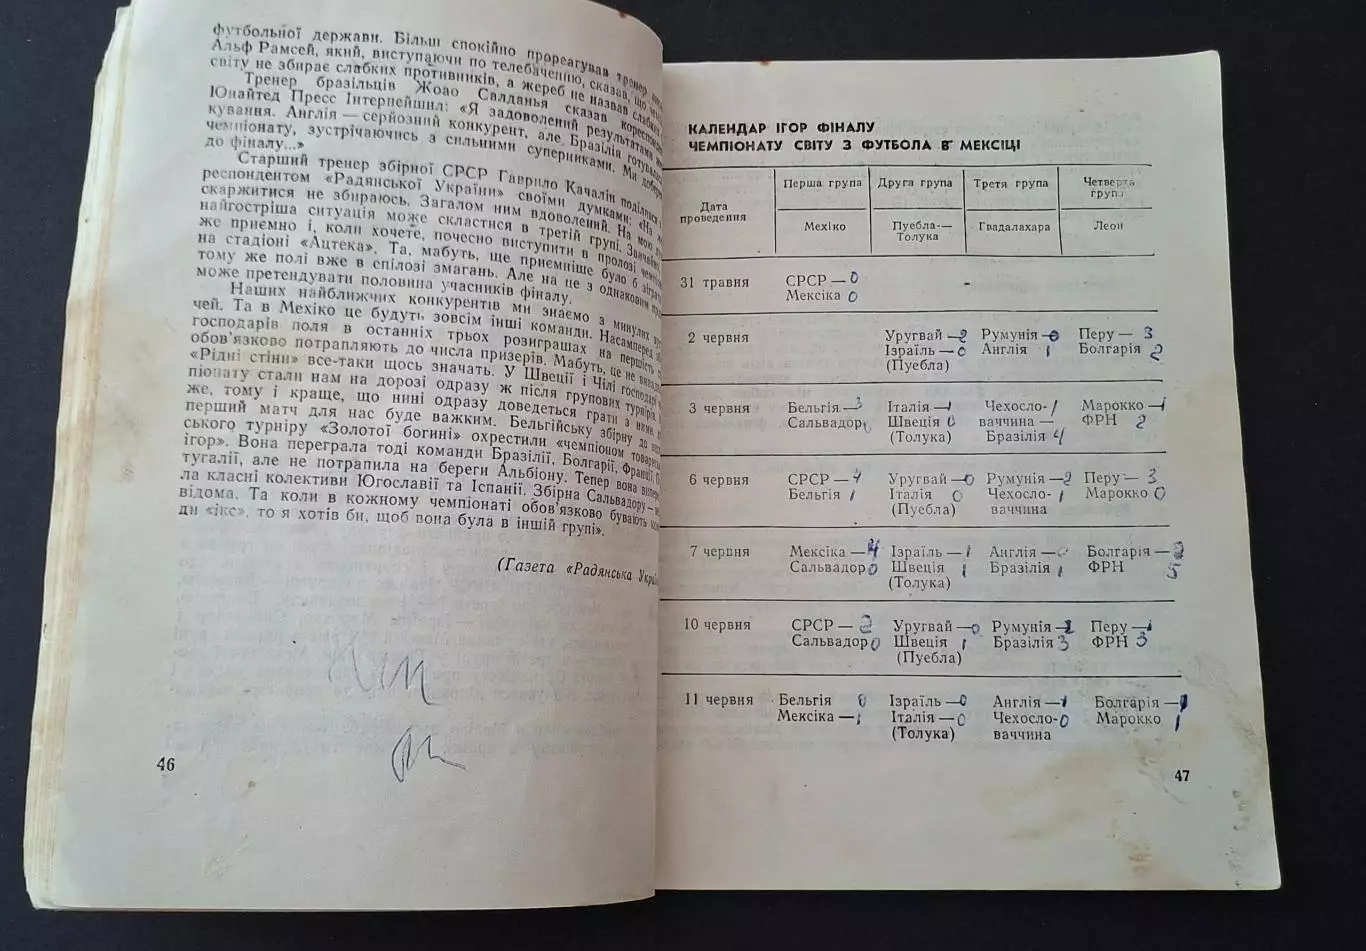 футбольної держави. Більш спокійно прореагував тренер
Альф Рамсей, який, виступаючи по телебаченню, сказав, що
світу не збирає слабких противників, а жереб не назвав слабких
Тренер бразільців Жоао Салданья сказав
Юнайтед Пресс Інтернейшнл: «Я задоволений результатами
кування. Англія — серйозний конкурент, але Бразілія
чемпіонату, зустрічаючись з сильними суперниками. Ми
до фіналу...»
Старший тренер збірної СРСР Гаврило Качалін поділився
респондентом «Радянської України» своїми думками: «На
скаржитися не збираюсь. Загалом ним вдоволений. На мою
найгостріша ситуація може скластися в третій групі. Звичайно,
же приємно і, коли хочете, почесно виступити в пролозі
на стадіоні «Ацтека». Та, мабуть, ще приємніше було б
тому же полі вже в епілозі змагань. Але на це з однаковим
може претендувати половина учасників фіналу.
Наших найближчих конкурентів ми знаємо з минулих
чей. Та в Мехіко це будуть зовсім інші команди. Насамперед
господарів поля в останніх трьох розиграшах на першість
обов'язково потрапляють до числа призерів. Мабуть, це не
«Рідні стіни» все-таки щось значать. У Швеції і Чілі господарі
піонату стали нам на дорозі одразу ж після групових турнірів.
же, тому і краще, що нині одразу доведеться грати з ними,
перший матч для нас буде важким. Бельгійську збірну до
ського турніру «Золотої богині» охрестили «чемпіоном
ігор». Вона переграла тоді команди Бразілії, Болгарії, Франції,
тугалії, але не потрапила на береги Альбіону. Тепер вона
ла класні колективи Югославії та Іспанії. Збірна Сальвадору —
відома. Та коли в кожному чемпіонаті обов'язково бувають
ди «ікс», то я хотів би, щоб вона була в іншій групі».
(Газета «Радянська
46
КАЛЕНДАР ІГОР ФІНАЛУ
ЧЕМПІОНАТУ СВІТУ З ФУТБОЛА В МЕКСІЦІ
Дата проведення Перша група Друга група Третя група Четверта група
Мехіко Пуебла— Толука Гвадалахара Леон
31 травня СРСР — 0
Мексіка 0
2 червня Уругвай — 2 Румунія — 0 Перу — 3
Ізраїль — 0 Англія 1 Болгарія 2
(Пуебла)
3 червня Бельгія — 3 Італія — 1 Чехосло- 1 Марокко — 1
Сальвадор 0 Швеція 0 ваччина — ФРН 2
(Толука) Бразілія 4
6 червня СРСР — 4 Уругвай — 0 Румунія — 2 Перу — 3
Бельгія 1 Італія 0 Чехосло- 1 Марокко 0
(Пуебла) ваччина
7 червня Мексіка — 4 Ізраїль — 1 Англія — 0 Болгарія — 2
Сальвадор 0 Швеція 1 Бразілія 1 ФРН 5
(Толука)
10 червня СРСР — 2 Уругвай — 0 Румунія — 2 Перу — 1
Сальвадор 0 Швеція 1 Бразілія 3 ФРН 3
(Пуебла)
11 червня Бельгія 0 Ізраїль — 0 Англія — 1 Болгарія — 1
Мексіка — 1 Італія — 0 Чехосло- 0 Марокко 1
(Толука) ваччина
47